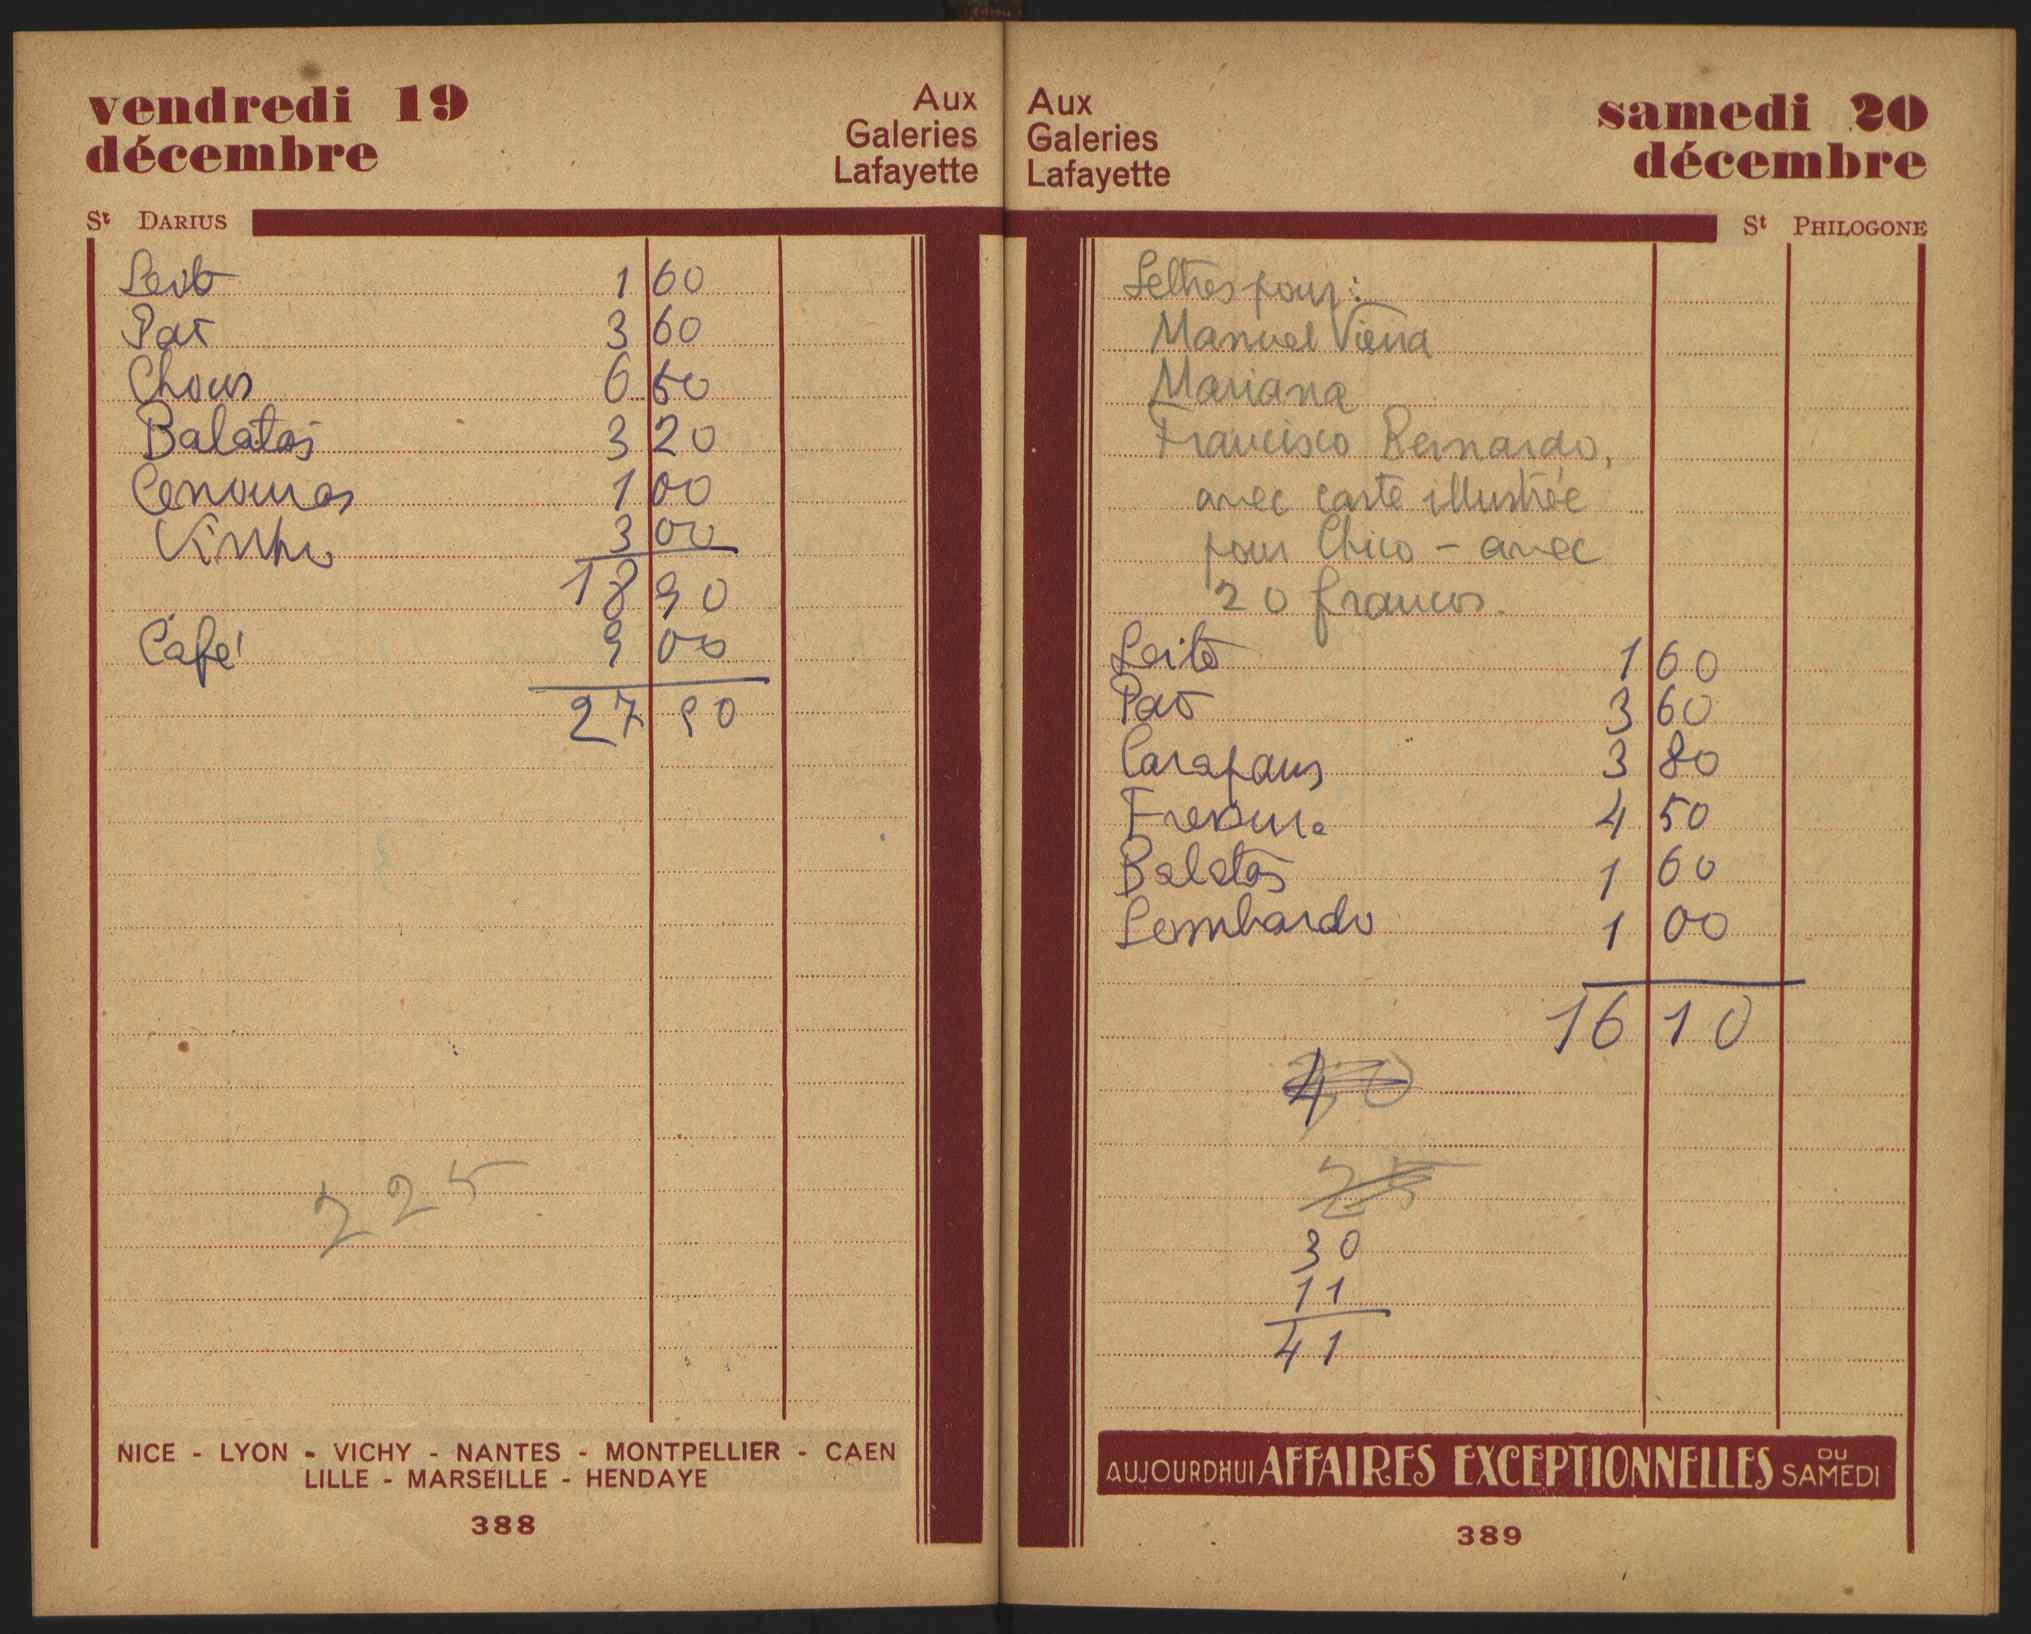 vendredi 19
décembre
Aux
Galeries
Lafayette
St DARIUS
Leite 1 60
Pao 3 60
Chous 6 50
Batatas 3 20
Cenouras 1 00
Vinho 3 00
18 90
Café 9 00
27 90
225
NICE - LYON - VICHY - NANTES - MONTPELLIER - CAEN
LILLE - MARSEILLE - HENDAYE
388
Aux
Galeries
Lafayette
samedi 20
décembre
St PHILOGONE
Lettres pour :
Manuel Viena
Mariana
Francisco Bernardo,
avec carte illustrée
pour Chico - avec
20 francos.
Leite 1 60
Pao 3 60
Carapaus 3 80
4 50
Batatas 1 60
Lombardo 1 00
16 10
40
25
30
11
41
AUJOURDHUI AFFAIRES EXCEPTIONNELLES DU SAMEDI
389